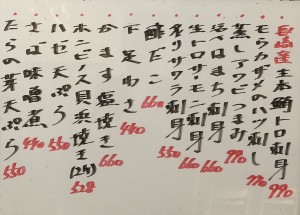 長崎産 生本鮪トロ刺身 990
モウカザメのハツ刺し 770
蒸しアワビつまみ 990
活はまち刺身 660
生トロサーモン刺身 660
炙りサワラ刺身 550
酢だこ 660
下足わさ 440
かます塩焼き 660
ホンビノス貝浜焼き(2ケ) 528
ハゼ天ぷら 550
さば味噌煮 440
たらの芽天ぷら 550